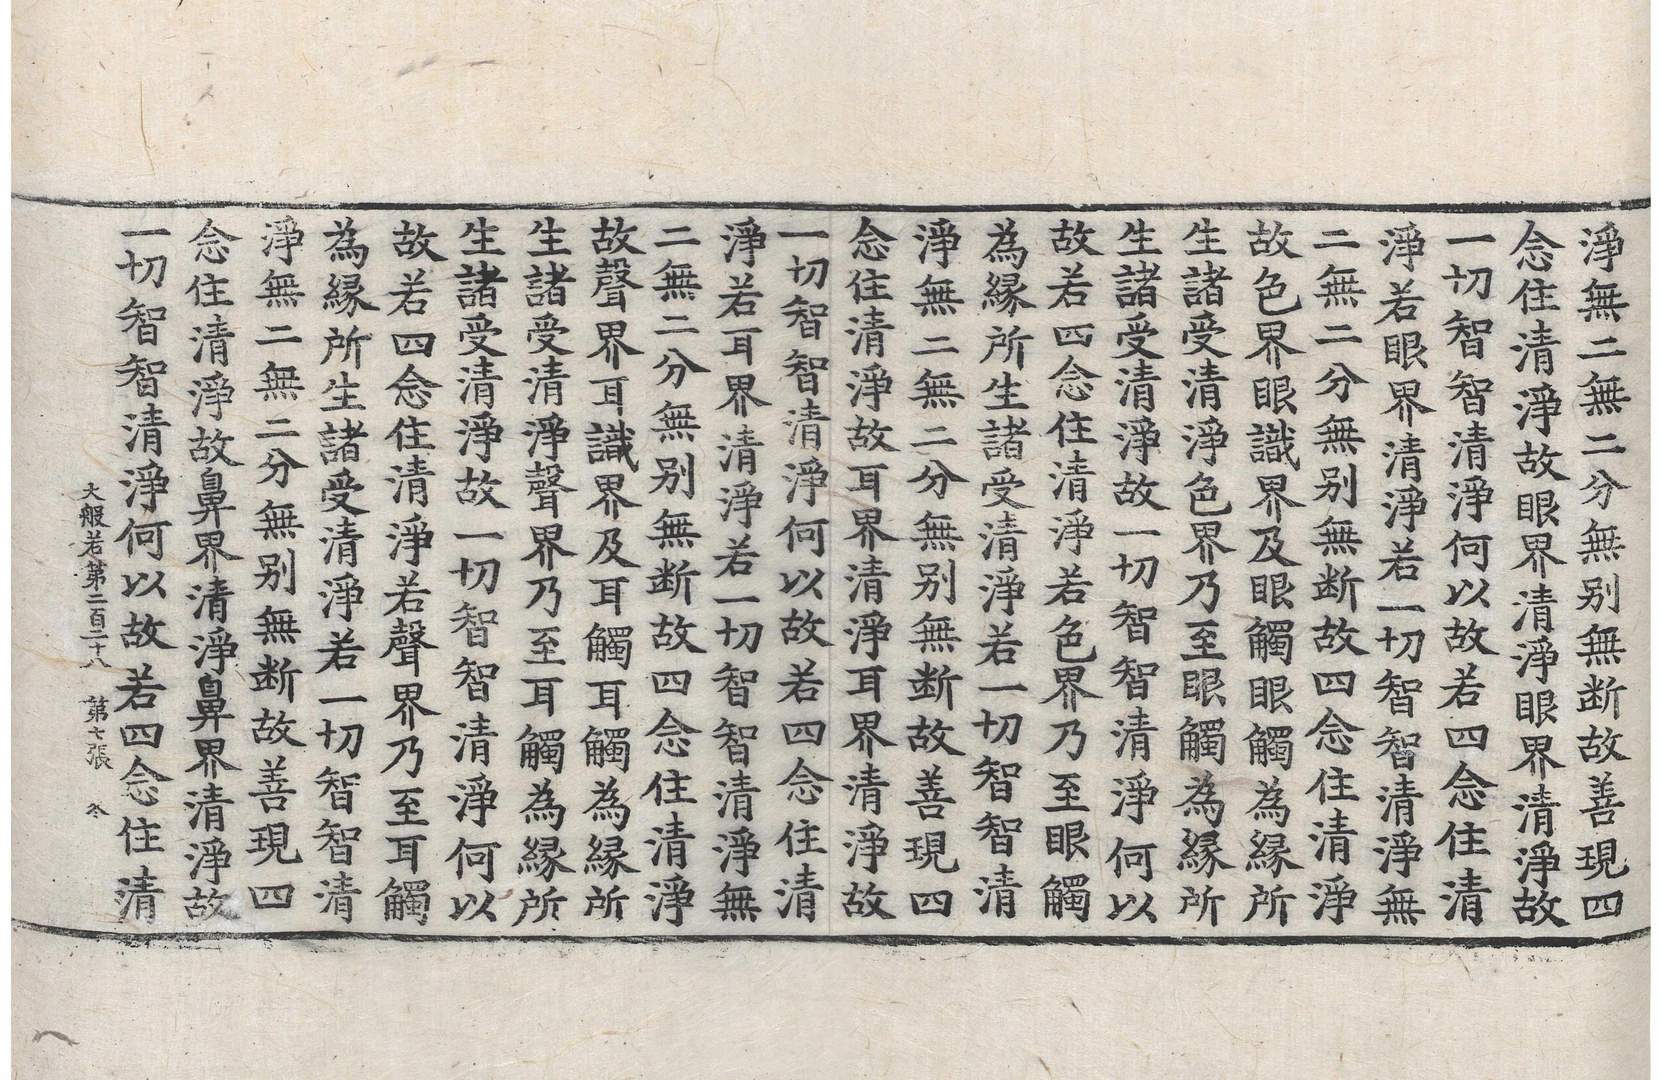 淨無二無二分無别無断故善現四
念住清淨故眼界清淨眼界清淨故
一切智智清淨何以故若四念住清
淨若眼界清淨若一切智智清淨無
二無二分無别無断故四念住清淨
故色界眼識界及眼觸眼觸為縁所
生諸受清淨色界乃至眼觸為縁所
生諸受清淨故一切智智清淨何以
故若四念住清淨若色界乃至眼觸
為縁所生諸受清淨若一切智智清
淨無二無二分無别無断故善現四
念住清淨故耳界清淨耳界清淨故
一切智智清淨何以故若四念住清
淨若耳界清淨若一切智智清淨無
二無二分無别無断故四念住清淨
故聲界耳識界及耳觸耳觸為縁所
生諸受清淨聲界乃至耳觸為縁所
生諸受清淨故一切智智清淨何以
故若四念住清淨若聲界乃至耳觸
為縁所生諸受清淨若一切智智清
淨無二無二分無别無断故善現四
念住清淨故鼻界清淨鼻界清淨故
一切智智清淨何以故若四念住清
大般若第二百二十八 第七張 冬